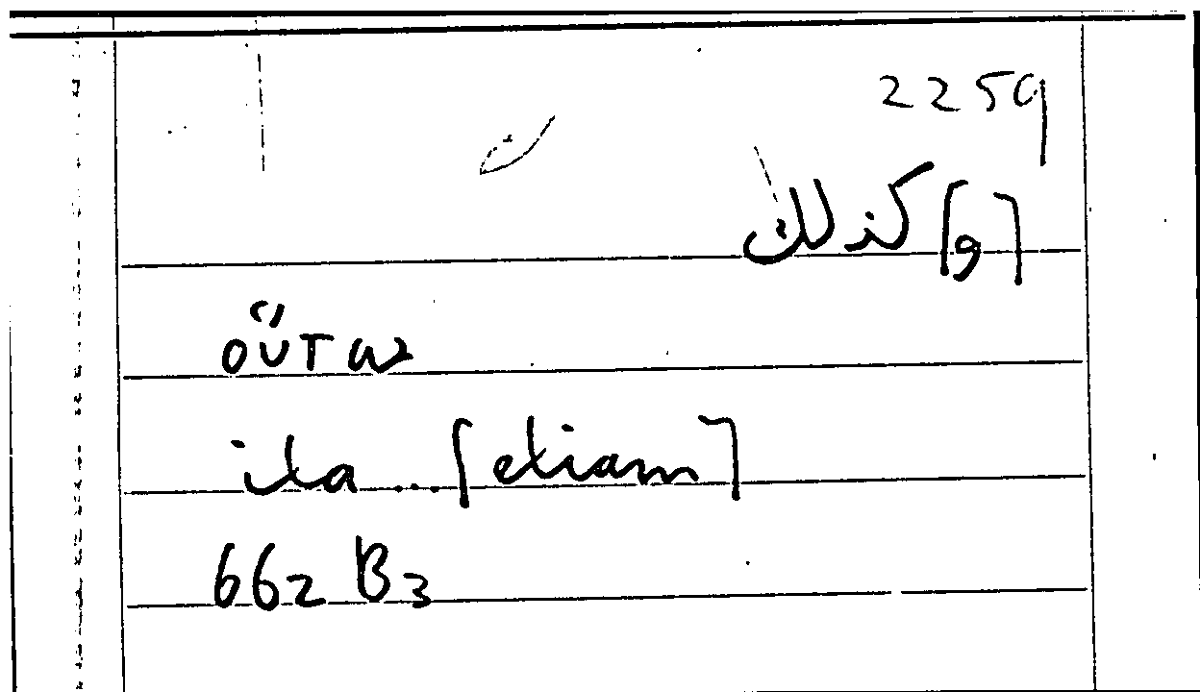 2259
[و]كذلك
οὕτω
ita ... [etiam]
662 B3